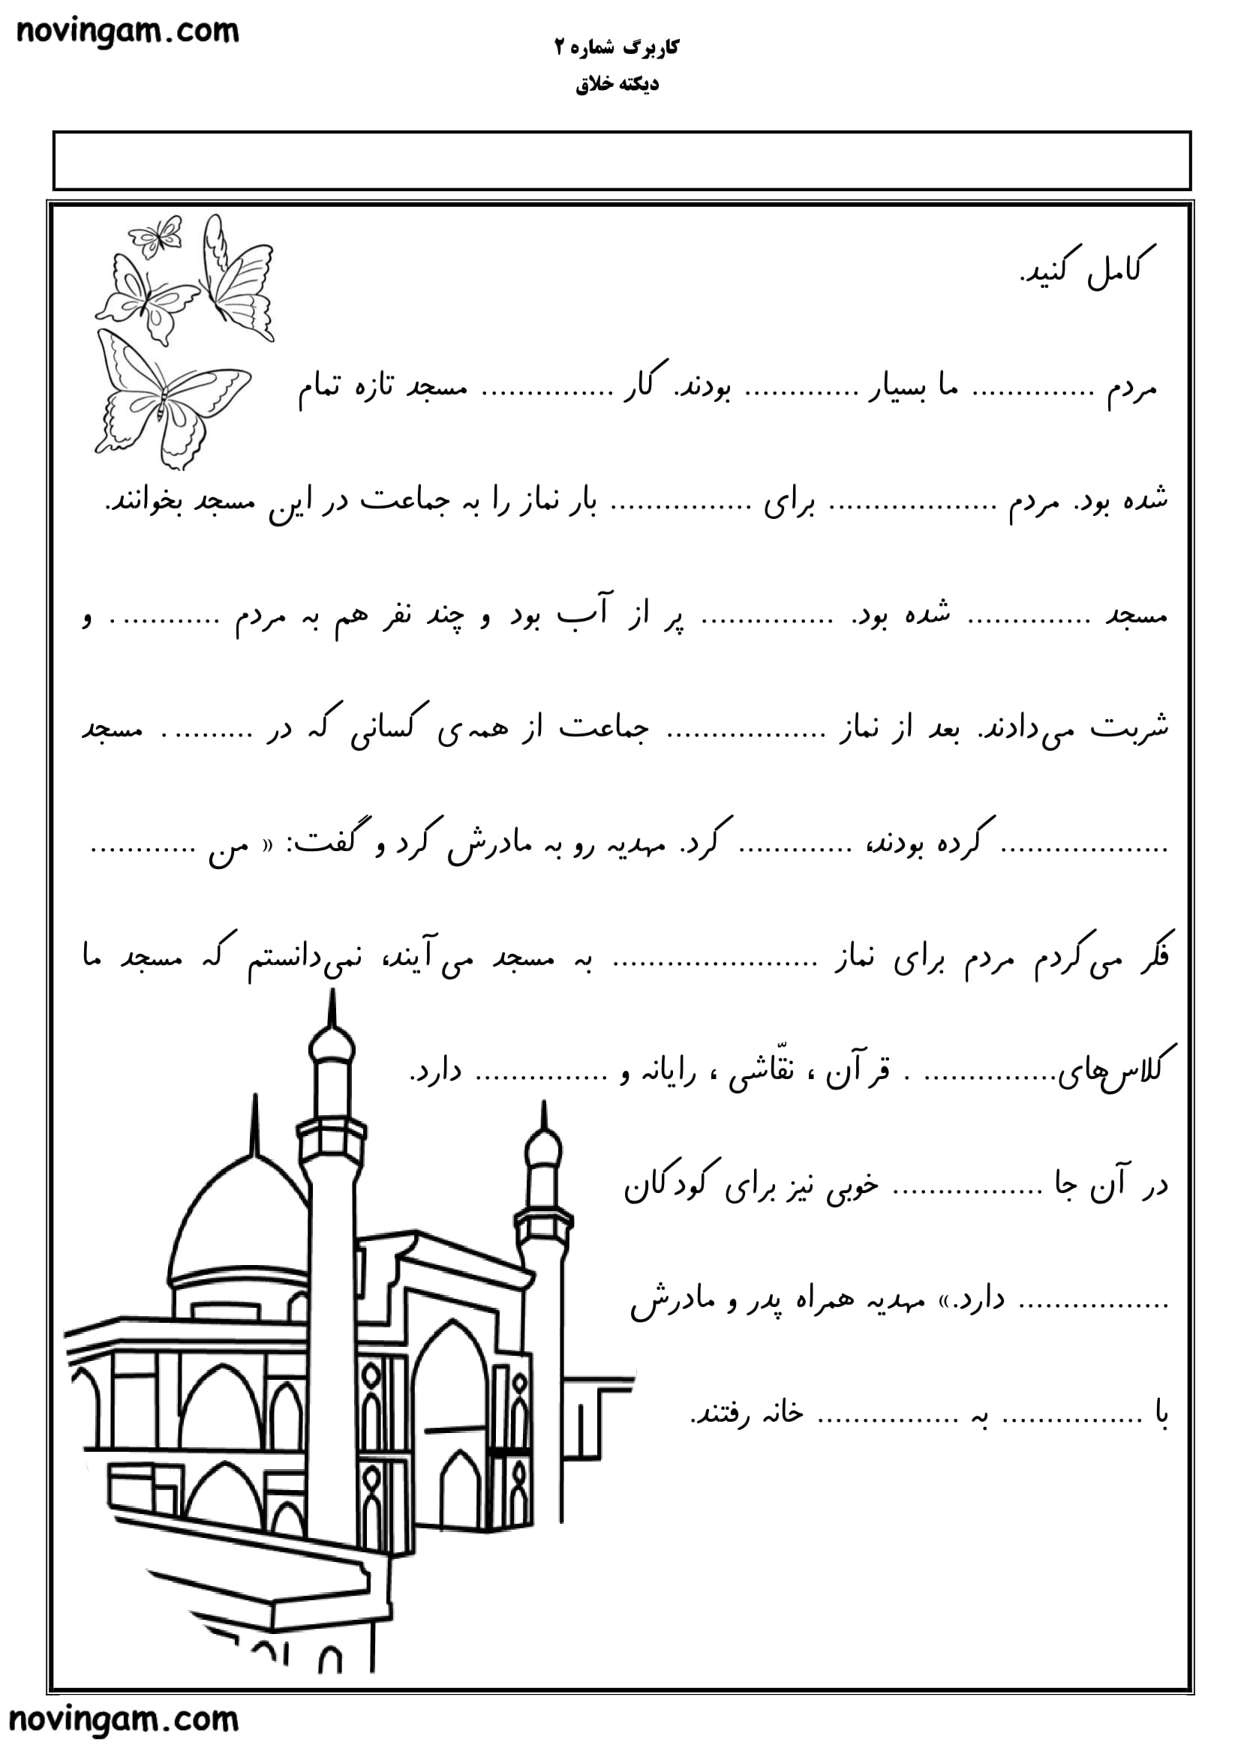 novingam.com
کاربرگ شماره ۲
دیکته خلاق
کامل کنید.
مردم .............. ما بسیار ............. بودند. کار ............... مسجد تازه تمام
شده بود. مردم ................... برای ................ بار نماز را به جماعت در این مسجد بخوانند.
مسجد .............. شده بود. ............... پر از آب بود و چند نفر هم به مردم ........... . و
شربت می‌دادند. بعد از نماز .................. جماعت از همه‌ی کسانی که در ......... . مسجد
................... کرده بودند، ............. کرد. مهدیه رو به مادرش کرد و گفت: « من ............
فکر می‌کردم مردم برای نماز ....................... به مسجد می‌آیند، نمی‌دانستم که مسجد ما
کلاس‌های............... . قرآن ، نقّاشی ، رایانه و ............... دارد.
در آن جا ................. خوبی نیز برای کودکان
................. دارد.» مهدیه همراه پدر و مادرش
با ................ به ................ خانه رفتند.
novingam.com